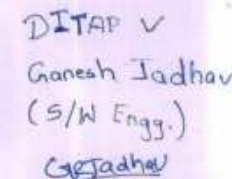 DITAP ✓
Ganesh Jadhav
(S/W Engg.)
GRJadhav